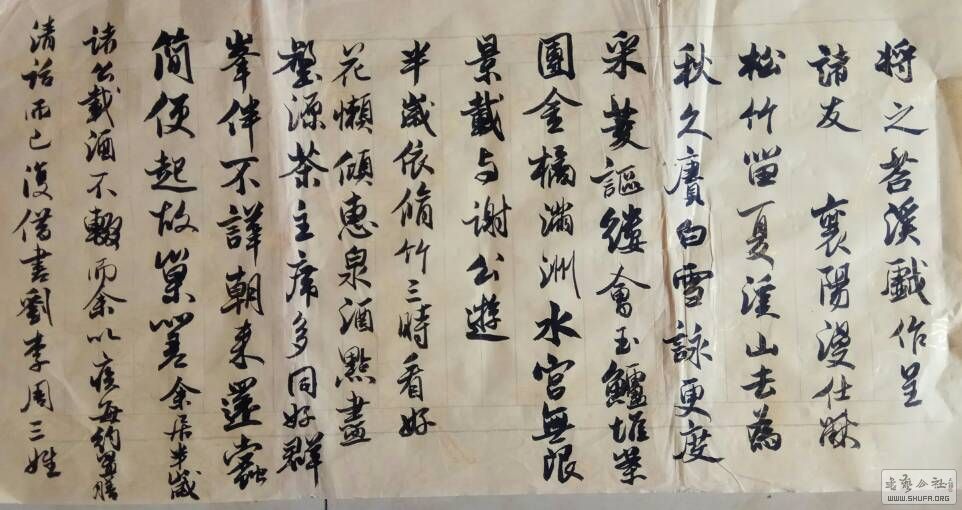 将之苕溪戲作呈
諸友 襄陽漫仕黻
松竹留夏溪山去為
秋久賡白雪詠更度
采菱謳縷會玉鱸堆案
團金橘滿洲水宮無限
景載与謝公遊
半歲依脩竹三時看好
花懶傾惠泉酒點盡
壑源茶主席多同好群
峯伴不譁朝来還蠹
简便起故巢嗟余居半歲
諸公載酒不輟而余以疾每約置膳
清話而已復借書劉李周三姓
书艺公社
WWW.SHUFA.ORG